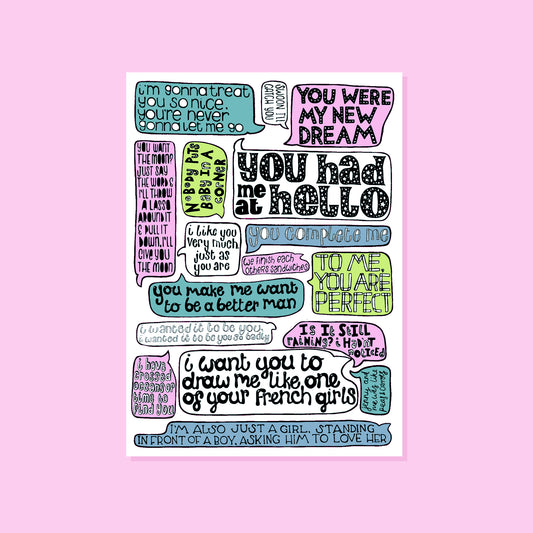 i'm gonna treat
you so nice,
you're never
gonna let me go
SWOON I'LL
CATCH YOU
YOU WERE
MY NEW
DREAM
YOU WANT
THE MOON?
JUST SAY
THE WORD &
I'LL THROW
A LASSO
AROUND IT
& PULL IT
DOWN, I'LL
GIVE YOU
THE MOON
NOBODY PUTS
BABY IN A
CORNER
you had
me at hello
you complete me
i like you
very much,
just as
you are
we finish each
others sandwiches
TO ME,
YOU ARE
PERFECT
you make me want
to be a better man
i wanted it to be you,
i wanted it to be you so badly
IS IT STILL
RAINING? I HADN'T
NOTICED
i have
crossed
oceans of
time to
find you
i want you to
draw me like one
of your french girls
jenny and
me was like
peas & carrots
I'M ALSO JUST A GIRL, STANDING
IN FRONT OF A BOY, ASKING HIM TO LOVE HER